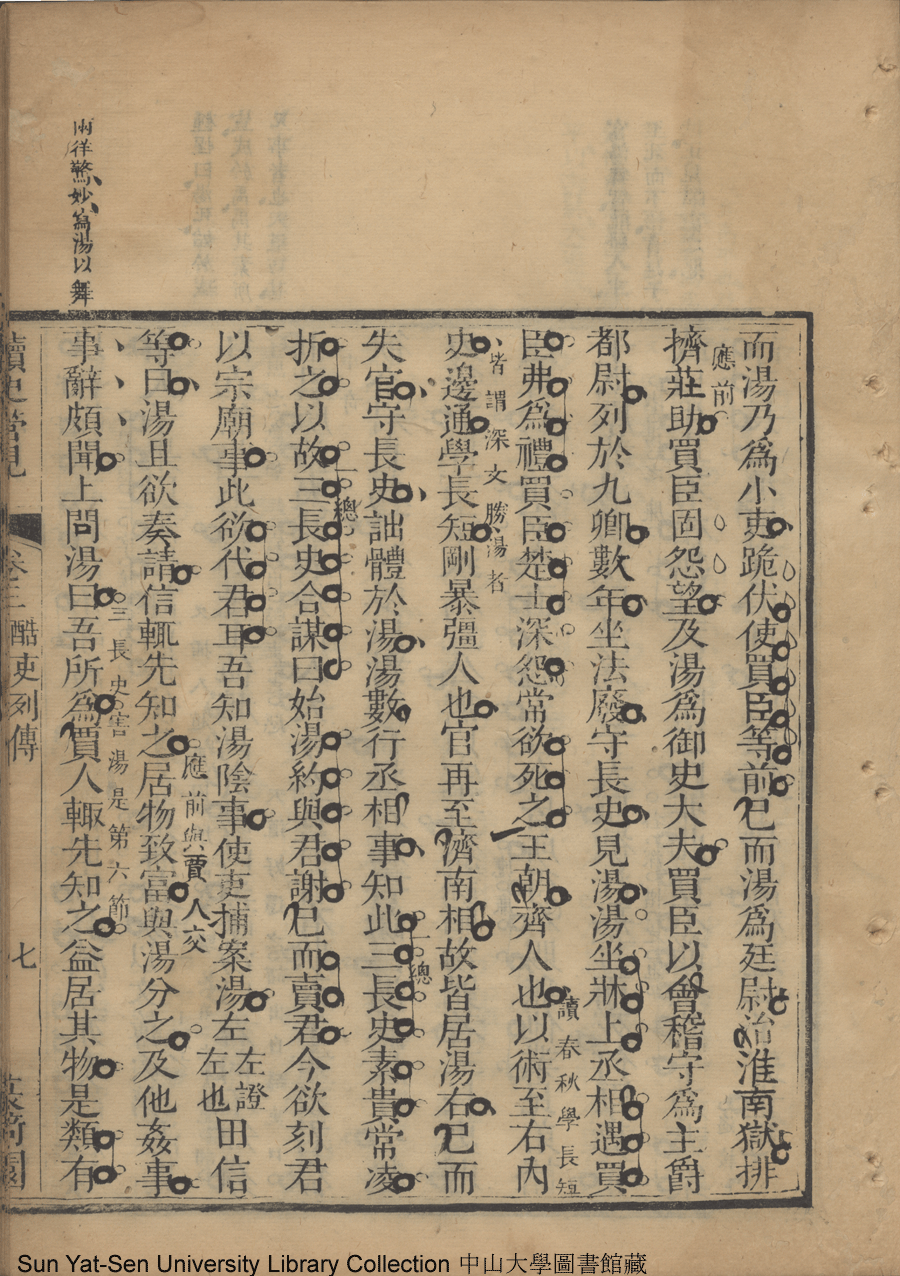 兩徉驚妙寫湯以舞
而湯乃爲小吏跪伏使買臣等前已而湯爲廷尉治淮南獄排
應前
擠莊助買臣固怨望及湯爲御史大夫買臣以會稽守爲主爵
都尉列於九卿數年坐法廢守長史見湯湯坐牀上丞相遇買
讀春秋學長短
臣弗爲禮買臣楚士深怨常欲死之王朝齊人也以術至右內
皆謂深文勝湯者
史邊通學長短剛暴彊人也官再至濟南相故皆居湯右已而
一總
失官守長史詘體於湯湯數行丞相事知此三長史素貴常凌
一總
折之以故三長史合謀曰始湯約與君謝已而賣君今欲刻君
以宗廟事此欲代君耳吾知湯陰事使吏捕案湯左左證左也田信
應前與賈人交
等曰湯且欲奏請信輒先知之居物致富與湯分之及他姦事
三長史害湯是第六節
事辭頗聞上問湯曰吾所爲賈人輒先知之益居其物是類有
讀史管見
卷三
酷吏列傳
七